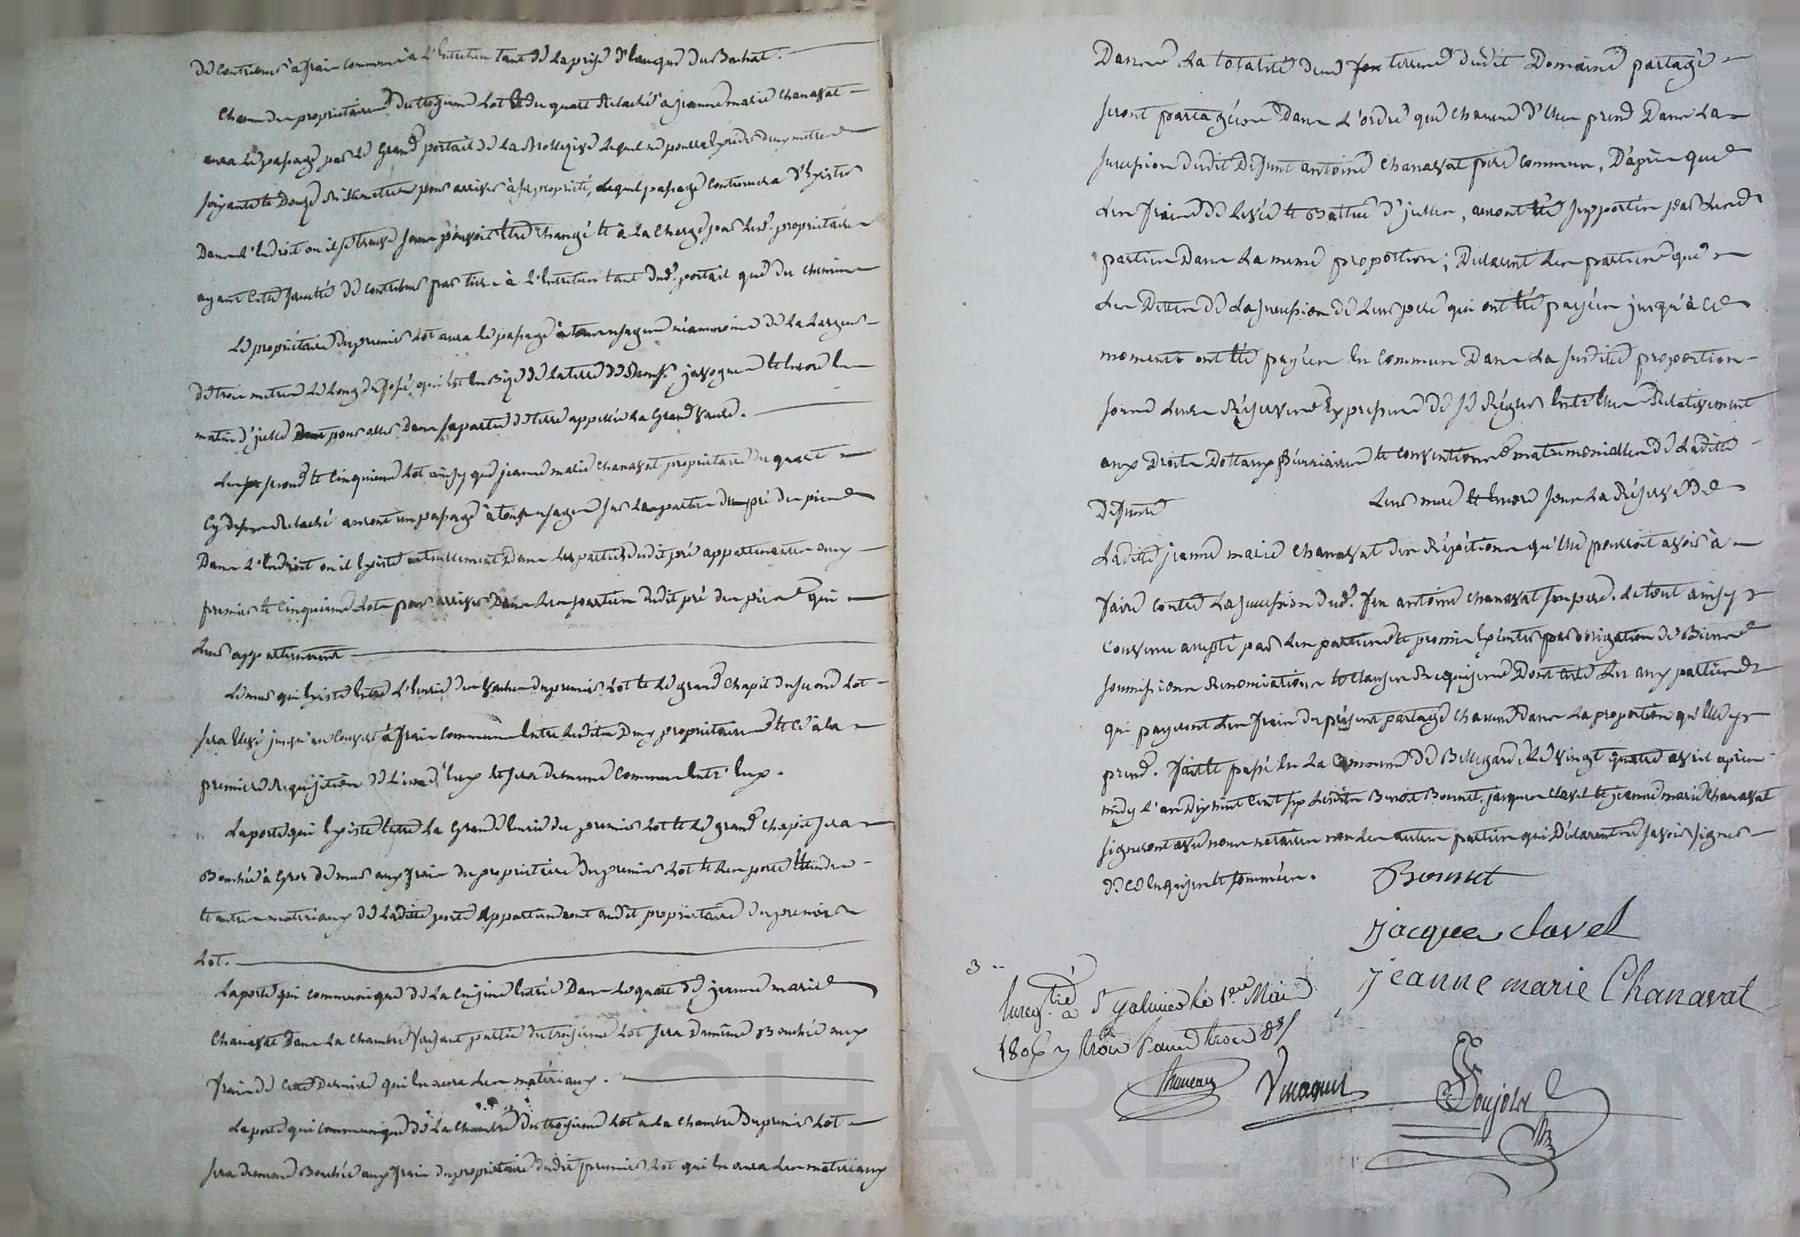 de contribuer à frais communs à l'entretien tant de la prise d'eau que du Bachat.
Chacun des propriétaires du troizieme lot et du quart relaché à jeanne marie chanavat
aura le passage par le Grand portail de la Brossizise lequel ne poura exceder deux metres
soixante et Douze Millimetres pour arriver à sa proprieté, lequel passage continuera d'exister
Dans l'endroit ou il se trouve sans pouvoir etre changé et à la charge par lesd. proprietaires
ayant cette faculté de contribuer par tiers à l'entretien tant dud. portail que du chemin
Le propriétaire du premier lot aura le passage à tous usages néamoins de la Largeur
de trois metres le Long du fossé qui est en Bize de la terre de et encore en
matin d'icelle pour aller Dans sa partie de terre appellée la Grand vaure.
Les second et cinquieme lot ainsy que jeanne marie chanavat proprietaire du quart
cy dessus Relaché auront un passage à tous usages sur la partie du pré des pierres
Dans l'endroit ou il existe actuellement Dans les parties dudit pré appartenantes aux
premier et cinquieme lots pour arriver Dans les parties dudit pré des pierres qui
leurs appartiennent
Le mur qui existe entre l'Ecurie des vaches du premier lot et le grand chapit du second lot
sera elevé jusqu'au couvert à frais communs entre lesdits Deux propriétaires et ce à la
premiere requisition de l'un d'eux et sera demeuré commun entr'eux.
La porte qui existe entre la Grande Ecurie du premier lot et le grand chapit sera
Bouchée à gros de mur aux frais du proprietaire du premier lot et les
et autres materiaux de ladite porte appartiendront audit proprietaire du premier
lot.
La porte qui communique de la cuizine entrée Dans le quart de jeanne marie
Chanavat Dans la chambre faisant partie du troizieme lot sera de meme Bouchée aux
frais de cette Derniere qui en aura les materiaux.
La porte qui communique de la chambre du troizieme lot a la chambre du premier lot
sera de meme Bouchée aux frais du proprietaire dudit premier lot qui en aura les materiaux
Dans la totalité des terres dudit Domaine partagé
seront partagées Dans l'ordre que chacun d'eux prend Dans la
succession dudit Defunt antoine Chanavat pere commun, D'après que
les frais de levée et Battue d'icelles, auront été supportés par lesd.
parties Dans la meme proportion; Declarent les parties que
les Dettes de la succession de leur pere qui ont été payées jusqu'à ce
moment ont été payées en commun Dans la susdite proportion
sous leurs Réserves expresses de se Régler entr'elles Relativement
aux Droits Dottaux et conventions matrimonialles de Ladite
Defunte leur mere et encore sous la Réserve de
Ladite jeanne marie Chanavat des Répétitions qu'elle pourroit avoir à
faire contre la succession dud. feu antoine Chanavat son pere. Le tout ainsy
convenu accepté par les parties et promis exécuter par obligation de Biens
soumissions Renonciations et clauses Requises Dont acte lu aux parties
qui payeront les frais du présent partage chacune dans la proportion qu'elle y
prend. Fait et passé en la Commune de Bellegarde le vingt quatre avril après
midy l'an Dix huit Cent six lesdits Benoit Bonnet, jacques clavel et jeanne marie Chanavat
signeront avec nous notaires non les autres parties qui Déclarent ne savoir signer
de ce enquises et sommées.
Bonnet
jacques clavel
jeanne marie Chanavat
3
Enreg.tré à St galmier le 1.er Mai
1806
CHARETON